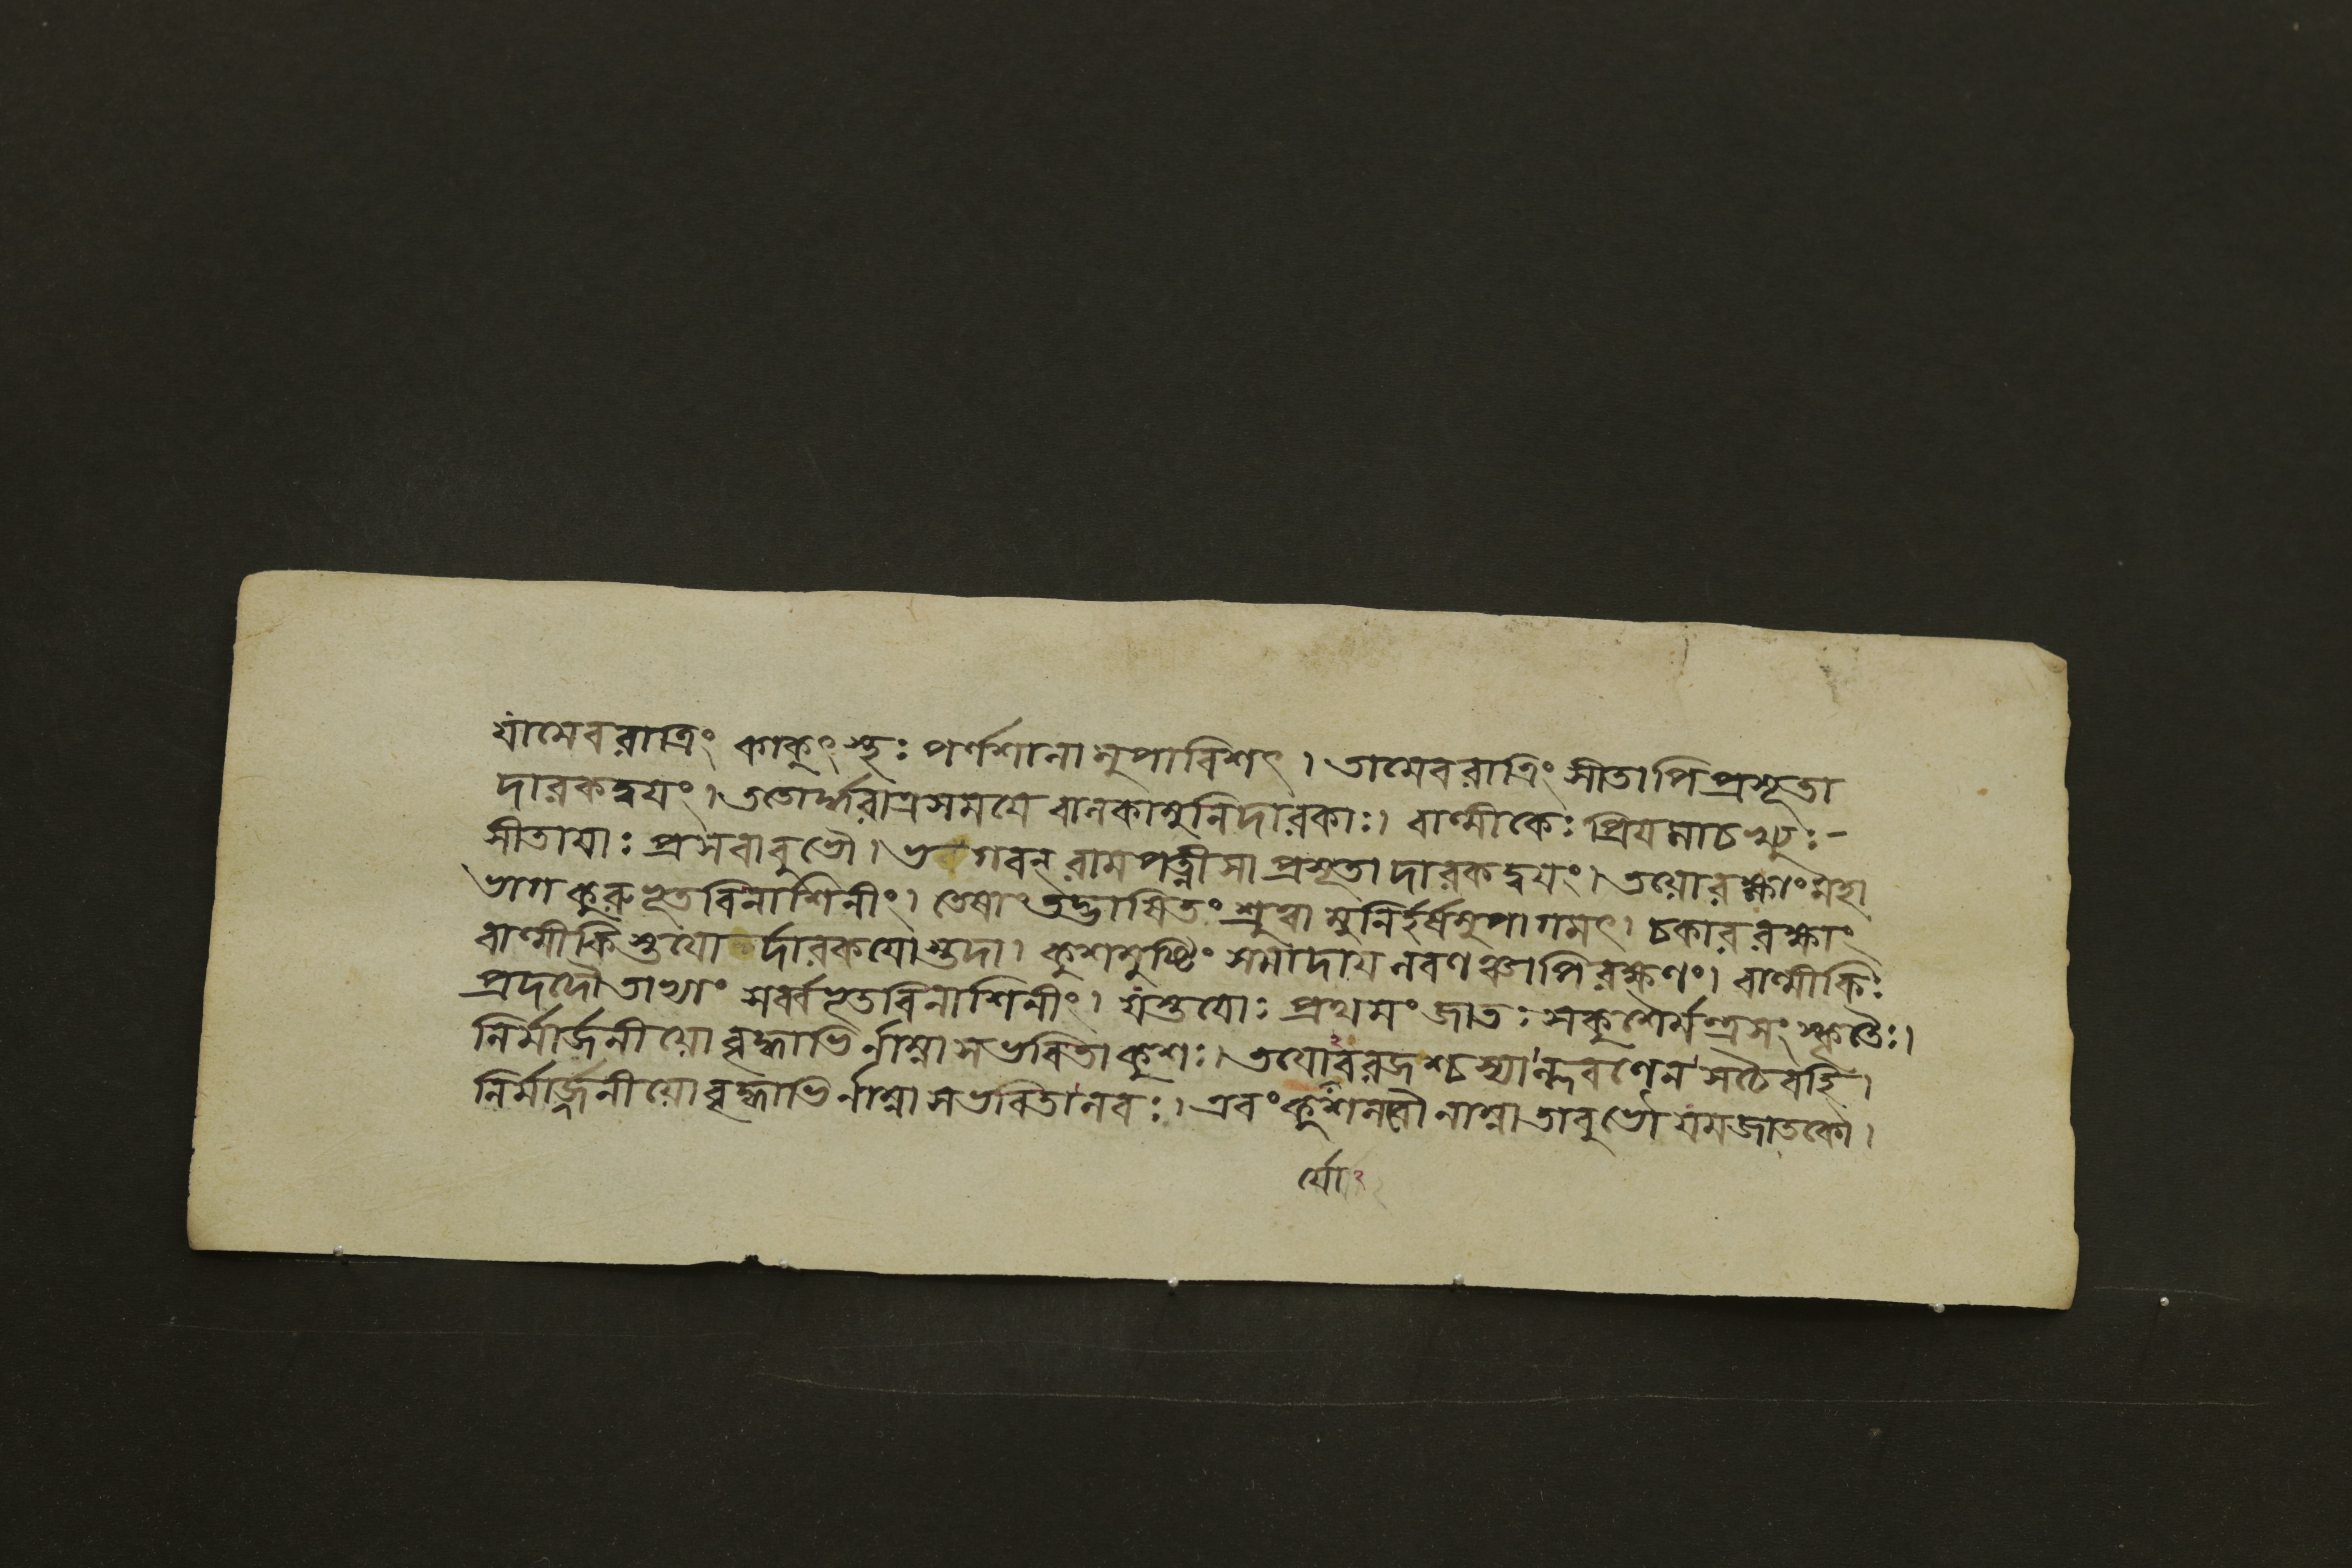 যামেব রাত্রিং কাকুৎস্থঃ পর্ণশালামুপাবিশৎ। তামেব রাত্রিং সীতাপি প্রসূতা
দারকদ্বয়ং। ততোর্দ্ধরাত্রসময়ে বালকামুনিদারকাঃ। বাল্মীকেঃ প্রিয়মাচখ্যুঃ-
সীতায়াঃ প্রসবাবুভৌ। ভগবন্ রামপত্নী সা প্রসূতা দারকদ্বয়ং। তয়োরক্ষাং মহা
ভাগ কুরু ভূতবিনাশিনীং। তেষাং তদ্ভাষিতং শ্রুত্বা মুনির্হর্ষমুপাগমৎ। চকার রক্ষাং
বাল্মীকিস্তয়োর্দারকয়োস্তদা। কুশমুষ্টিং সমাদায় লবণঞ্চাপি রক্ষণং। বাল্মীকিঃ
প্রদদৌ তাভ্যাং সর্ব্বভূতবিনাশিনীং। যস্তয়োঃ প্রথমং জাতঃ স কুশৈর্মন্ত্রসংস্কৃতৈঃ।
নির্মার্জনীয়ো বৃদ্ধাভির্নাম্না স ভবিতা কুশঃ। তয়োরবরজশ্চ স্যাল্লবণেন স চৈবহি।
নির্মার্জ্জনীয়ো বৃদ্ধাভির্নাম্না স ভবিতা লবঃ। এবং কুশলবৌ নাম্না তাবুভৌ যমজাতকৌ।
র্যো